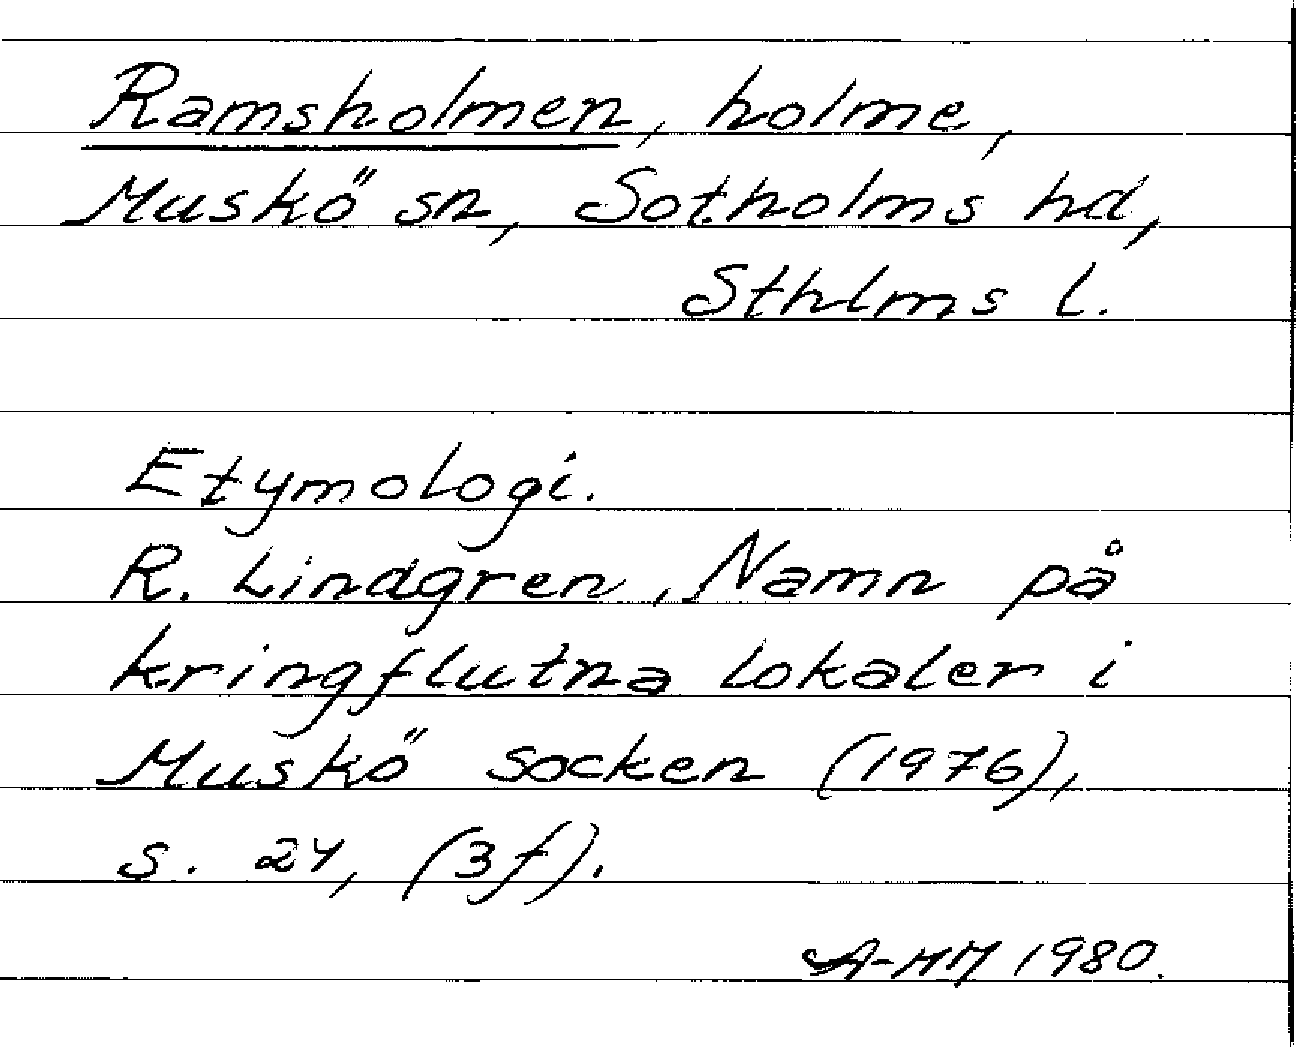 Ramsholmen, holme,
Muskö sn, Sotholms hd,
Sthlms l.
Etymologi.
R. Lindgren, Namn på
kringflutna lokaler i
Muskö socken (1976),
s. 24, (3f).
A-MM 1980.